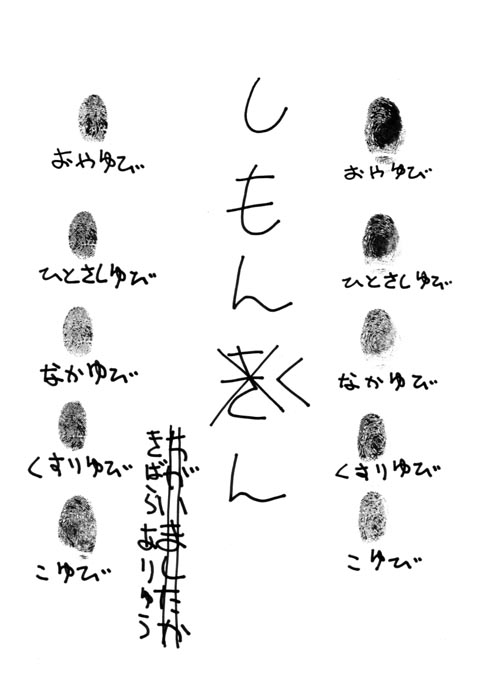 しもんくん
おやゆび
ひとさしゆび
なかゆび
くすりゆび
こゆび
おやゆび
ひとさしゆび
なかゆび
くすりゆび
こゆび
きばらありゅう